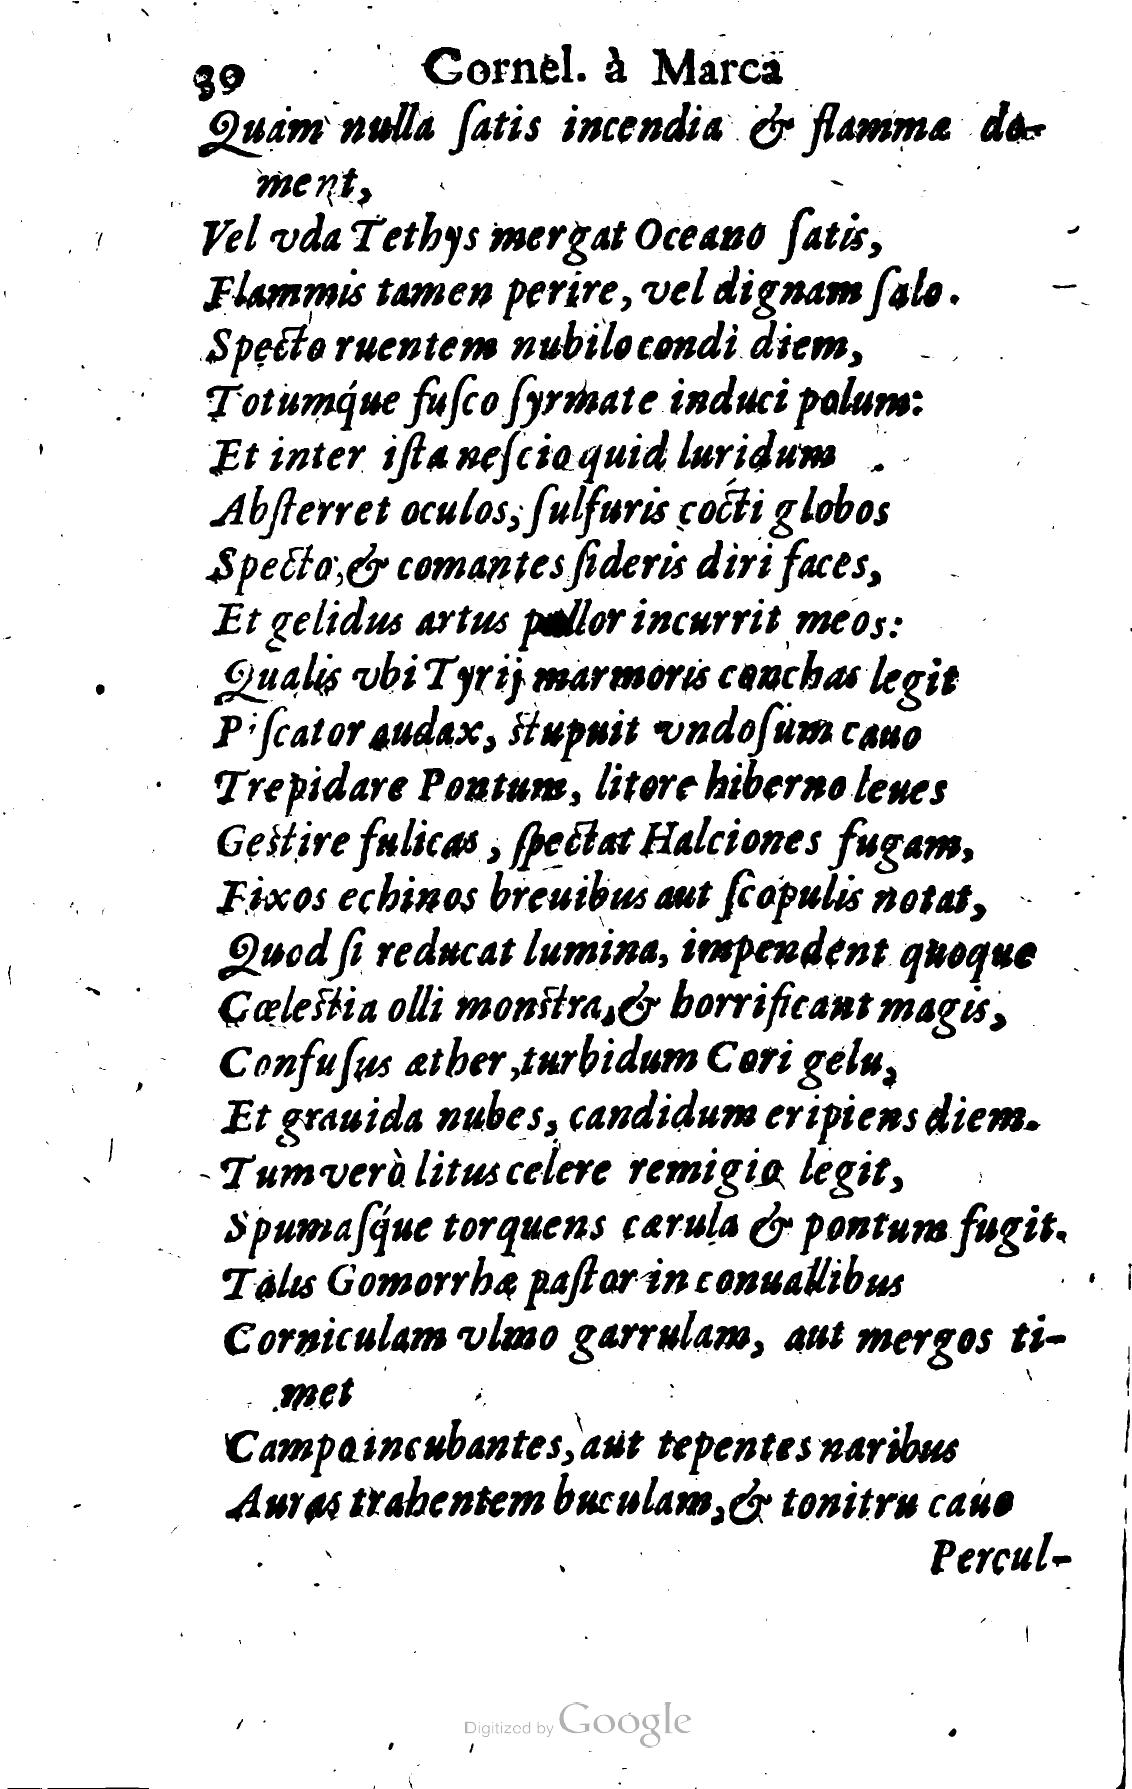 39 Cornel. à Marca
Quàm nulla ſatis incendia & flammæ do-
ment,
Vel vda Tethys mergat Oceano ſatis,
Flammis tamen perire, vel dignam ſalo.
Specto ruentem nubilo condi diem,
Totumq́ue fuſco ſyrmate induci polum:
Et inter iſta neſcio quid luridum
Abſterret oculos; ſulfuris cocti globos
Specto, & comantes ſideris diri faces,
Et gelidus artus pallor incurrit meos:
Qualis vbi Tyrij marmoris conchas legit
Piſcator audax, stupuit vndoſum cauo
Trepidare Pontum, litore hiberno leues
Gestire fulicas, ſpectat Halciones fugam,
Fixos echinos breuibus aut ſcopulis notat,
Quod ſi reducat lumina, impendent quoque
Cælestia olli monstra, & horrificant magis,
Confuſus æther, turbidum Cori gelu,
Et grauida nubes, candidum eripiens diem.
Tum verò litus celere remigio legit,
Spumaſq́ue torquens cærula & pontum fugit.
Talis Gomorrhæ paſtor in conuallibus
Corniculam vlmo garrulam, aut mergos ti-
met
Campo incubantes, aut tepentes naribus
Auras trahentem buculam, & tonitru cauo
Percul-
Digitized by Google